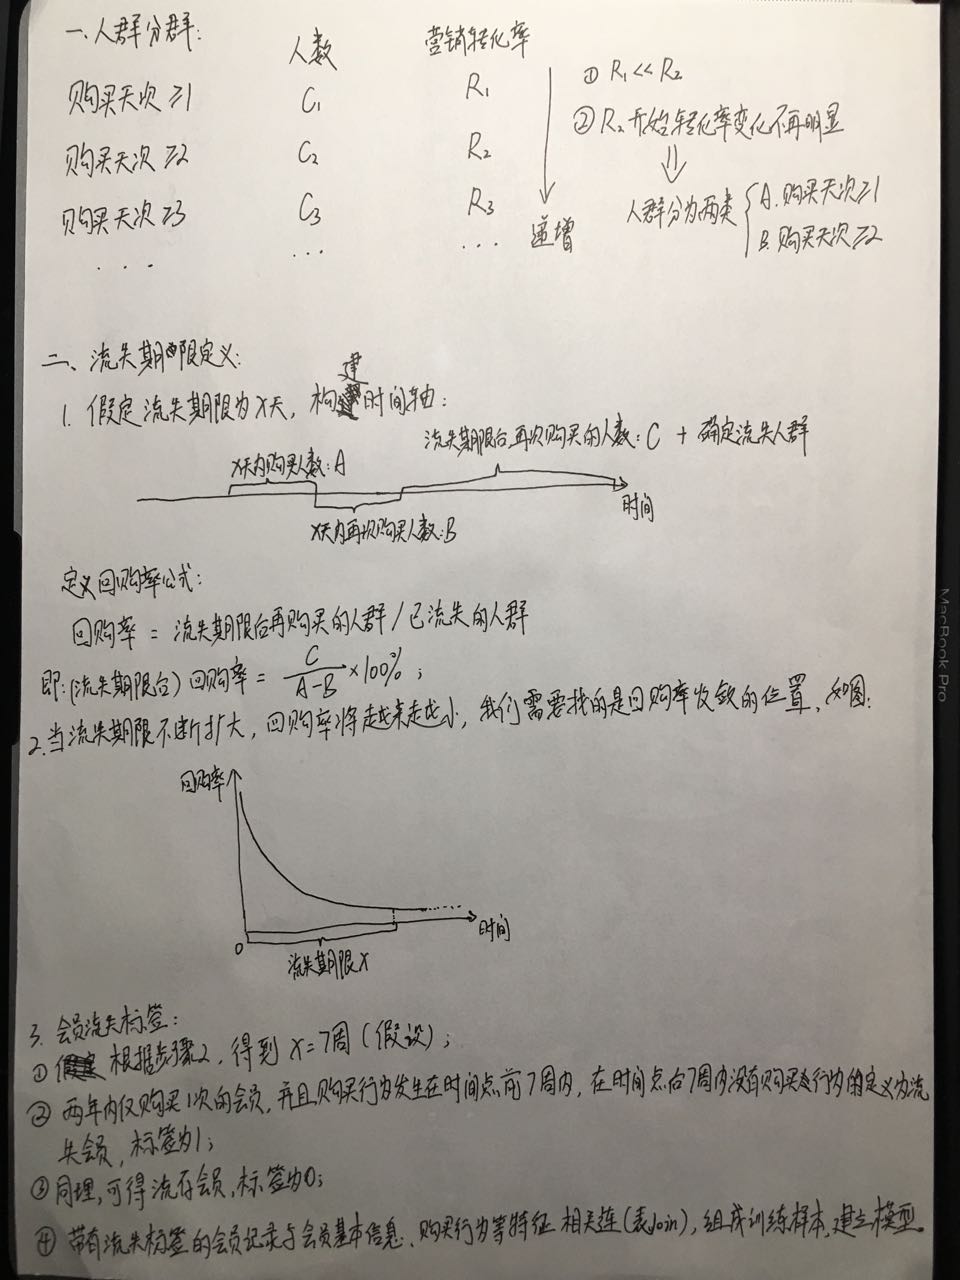 一.人群分群:
人数 营销转化率
购买天次≥1 C₁ R₁
购买天次≥2 C₂ R₂
购买天次≥3 C₃ R₃
... ... ... 递增
① R₁<<R₂
② R₂开始转化率变化不再明显
⇓
人群分为两类{A.购买天次≥1
B.购买天次≥2
二、流失期限定义:
1. 假定流失期限为X天, 构建时间轴:
流失期限后再次购买的人数:C + 确定流失人群
X天内购买人数:A
时间
X天内再次购买人数:B
定义回购率公式:
回购率 = 流失期限后再购买的人群/已流失的人群
即:(流失期限后)回购率 = C/(A-B) ×100%;
2.当流失期限不断扩大, 回购率将越来越小, 我们需要找的是回购率收敛的位置, 如图:
回购率
时间
0
流失期限X
3. 会员流失标签:
① 根据步骤2, 得到 X=7周(假设);
② 两年内仅购买1次的会员, 并且购买行为发生在时间点前7周内, 在时间点后7周内没有购买行为的定义为流
失会员, 标签为1;
③ 同理,可得流存会员,标签为0;
④ 带有流失标签的会员记录与会员基本信息、购买行为等特征 相关连(表Join), 组成训练样本,建立模型.
MacBook Pro